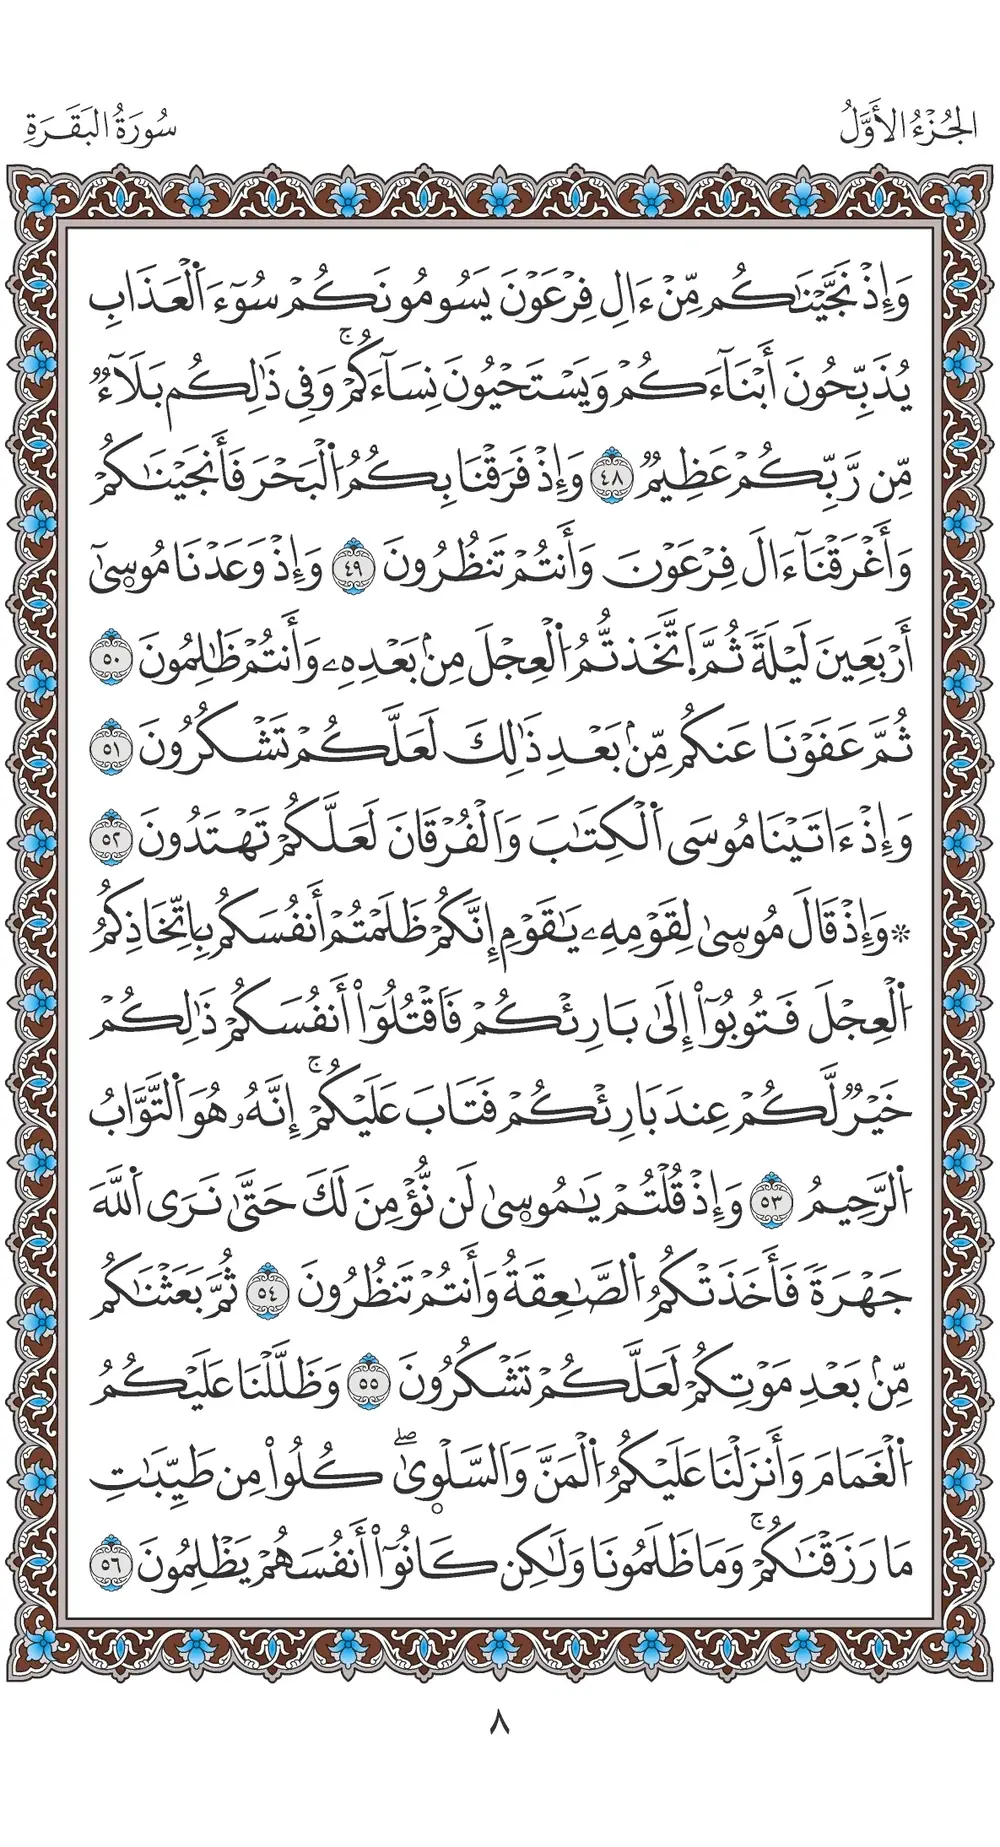 الجُزْءُ الأَوَّلُ
سُورَةُ البَقَرَةِ
وَإِذْ نَجَّيْنَٰكُم مِّنْ ءَالِ فِرْعَوْنَ يَسُومُونَكُمْ سُوٓءَ اَ۬لْعَذَابِ
يُذَبِّحُونَ أَبْنَآءَكُمْ وَيَسْتَحْيُونَ نِسَآءَكُمْۚ وَفِى ذَٰلِكُم بَلَآءٌ
مِّن رَّبِّكُمْ عَظِيمٌ ٤٨ وَإِذْ فَرَقْنَا بِكُمُ اُ۬لْبَحْرَ فَأَنجَيْنَٰكُمْ
وَأَغْرَقْنَآ ءَالَ فِرْعَوْنَ وَأَنتُمْ تَنظُرُونَ ٤٩ وَإِذْ وَعَدْنَا مُوسۭيٰٓ
أَرْبَعِينَ لَيْلَةً ثُمَّ اَ۪تَّخَذتُّمُ اُ۬لْعِجْلَ مِنۢ بَعْدِهِۦ وَأَنتُمْ ظَٰلِمُونَ ٥٠
ثُمَّ عَفَوْنَا عَنكُم مِّنۢ بَعْدِ ذَٰلِكَ لَعَلَّكُمْ تَشْكُرُونَ ٥١
وَإِذْ ءَاتَيْنَا مُوسَى اَ۬لْكِتَٰبَ وَالْفُرْقَانَ لَعَلَّكُمْ تَهْتَدُونَ ٥٢
۞ وَإِذْ قَالَ مُوسۭيٰ لِقَوْمِهِۦ يَٰقَوْمِ إِنَّكُمْ ظَلَمْتُمْ أَنفُسَكُم بِاتِّخَاذِكُمُ
اُ۬لْعِجْلَ فَتُوبُوٓاْ إِلَىٰ بَارِئْكُمْ فَاقْتُلُوٓاْ أَنفُسَكُمْ ذَٰلِكُمْ
خَيْرٌ لَّكُمْ عِندَ بَارِئْكُمْ فَتَابَ عَلَيْكُمْۚ إِنَّهُۥ هُوَ اَ۬لتَّوَّابُ
اُ۬لرَّحِيمُ ٥٣ وَإِذْ قُلْتُمْ يَٰمُوسۭيٰ لَن نُّؤْمِنَ لَكَ حَتَّىٰ نَرَى اَ۬للَّهَ
جَهْرَةً فَأَخَذَتْكُمُ اُ۬لصَّٰعِقَةُ وَأَنتُمْ تَنظُرُونَ ٥٤ ثُمَّ بَعَثْنَٰكُم
مِّنۢ بَعْدِ مَوْتِكُمْ لَعَلَّكُمْ تَشْكُرُونَ ٥٥ وَظَلَّلْنَا عَلَيْكُمُ
اُ۬لْغَمَامَ وَأَنزَلْنَا عَلَيْكُمُ اُ۬لْمَنَّ وَالسَّلْوۭيٰۖ كُلُواْ مِن طَيِّبَٰتِ
مَا رَزَقْنَٰكُمْۚ وَمَا ظَلَمُونَا وَلَٰكِن كَانُوٓاْ أَنفُسَهُمْ يَظْلِمُونَ ٥٦
٨